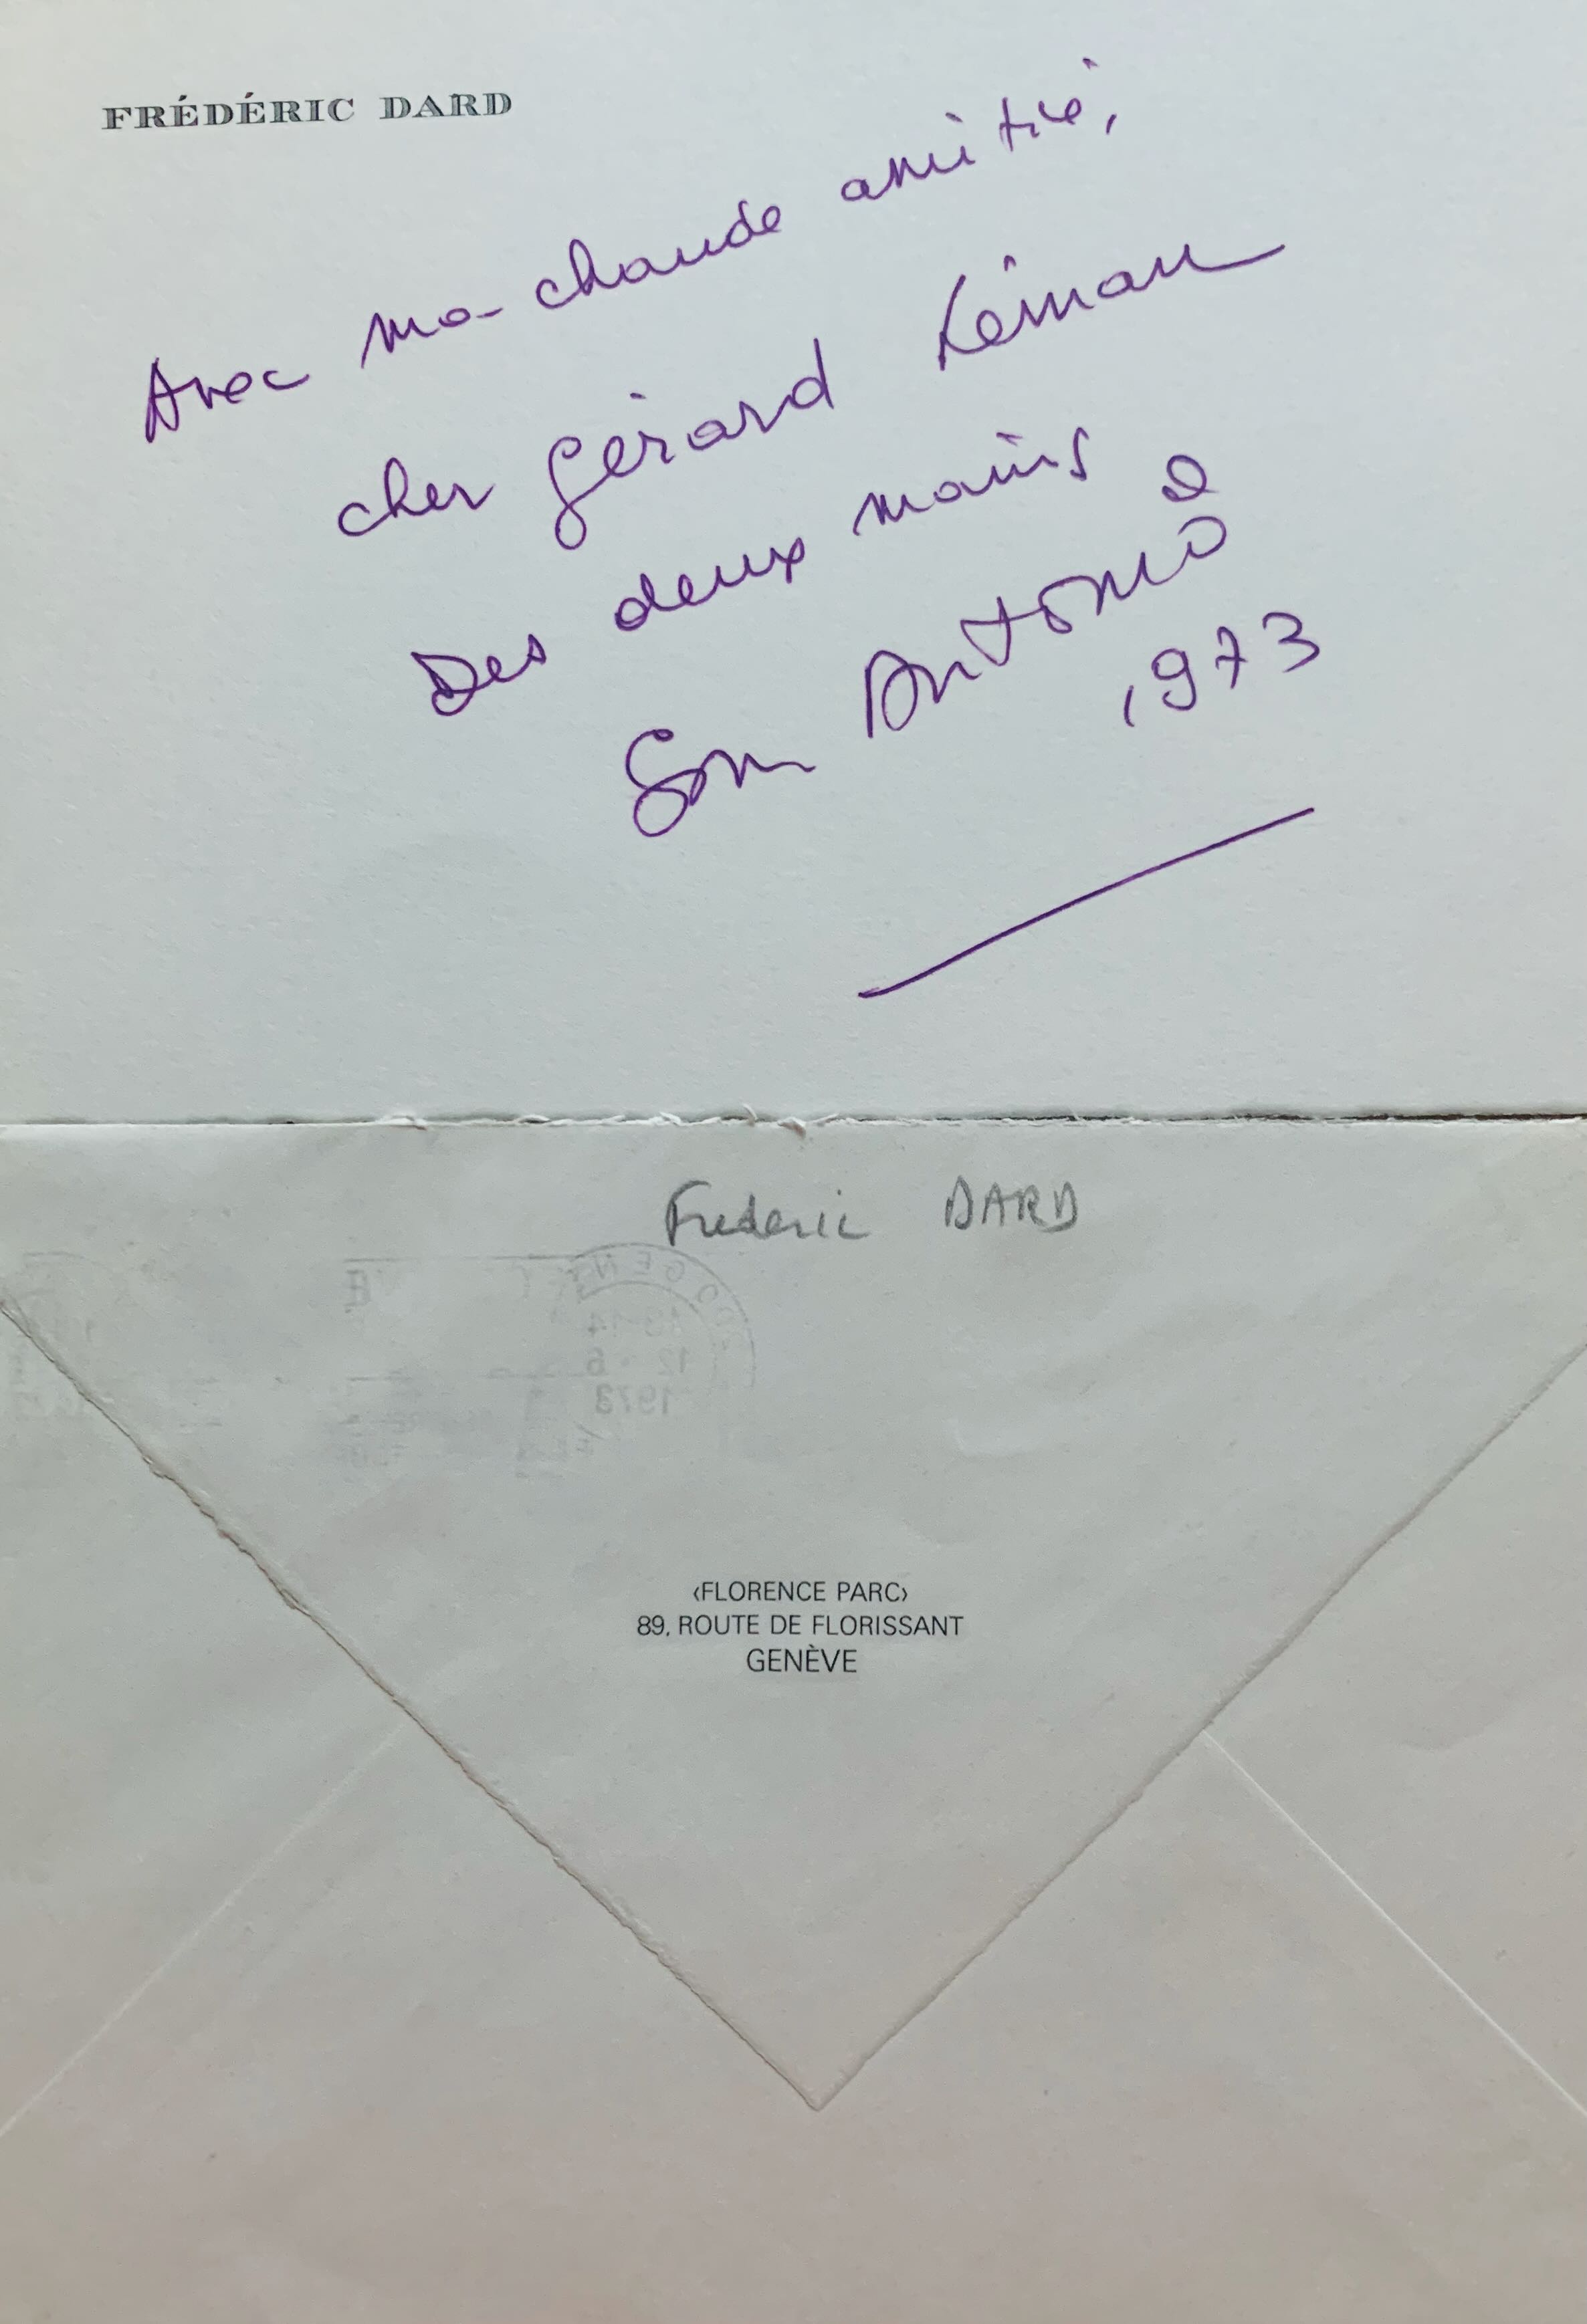 FRÉDÉRIC DARD
Avec ma chaude amitié,
cher Gérard Léman
Des deux mains
San Antonio
1973
Frederic DARD
12 - 6
1973
‹FLORENCE PARC›
89, ROUTE DE FLORISSANT
GENÈVE